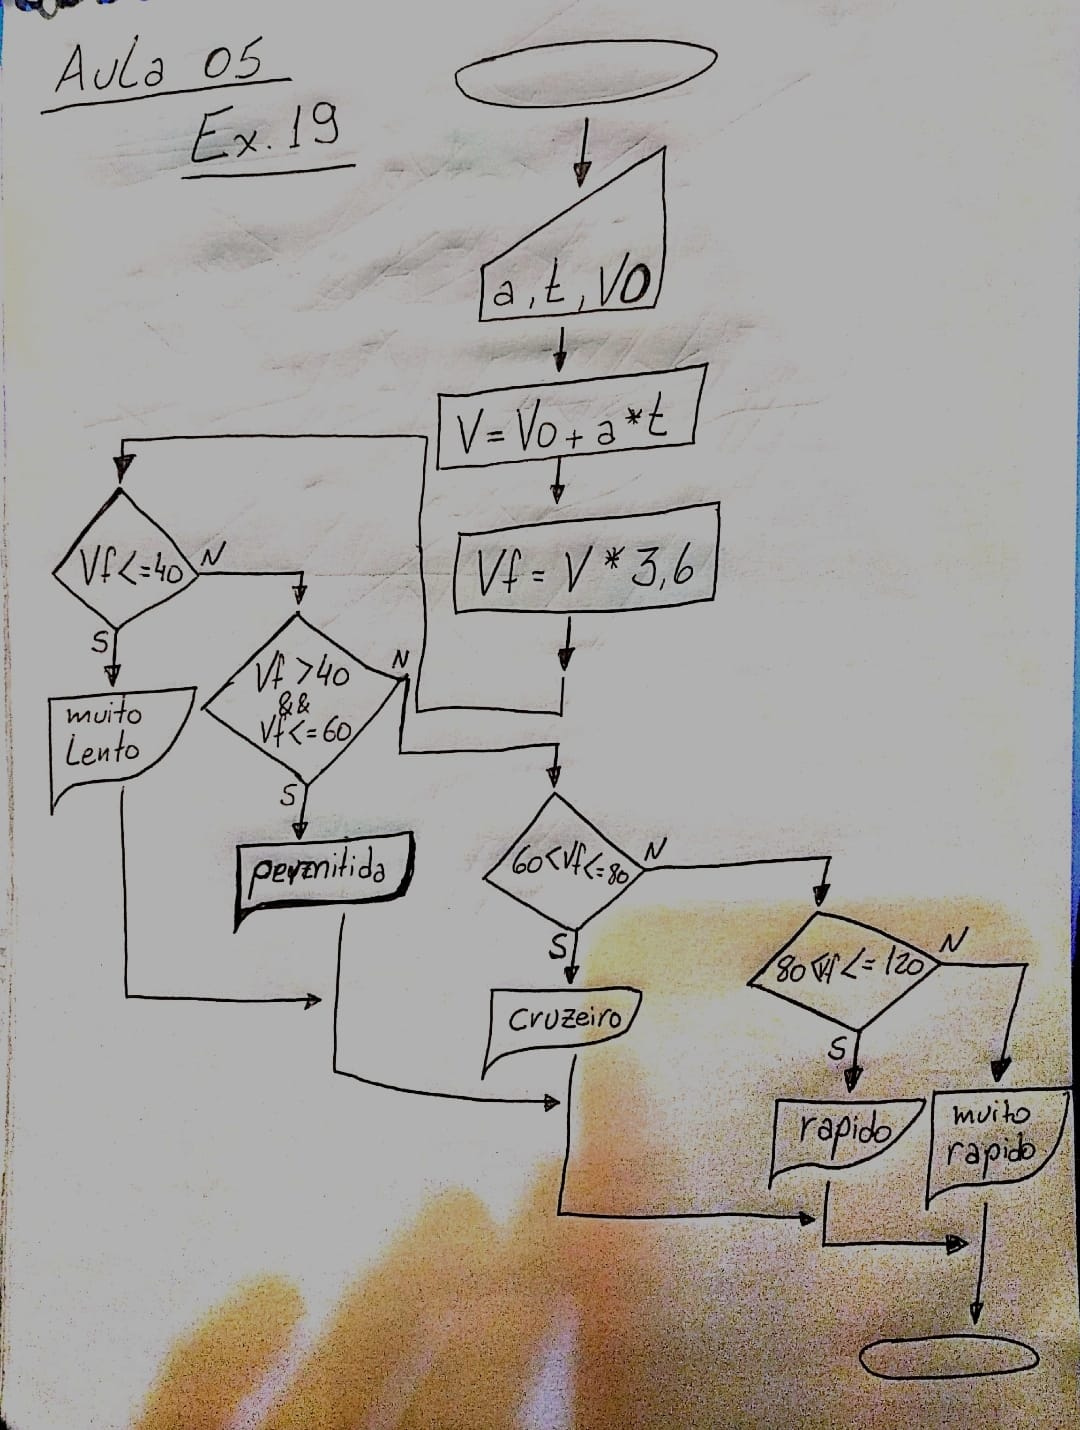 Aula 05
Ex. 19
a, t, V0
V = Vo + a * t
Vf = V * 3,6
Vf <= 40
N
S
muito
Lento
Vf > 40
&&
Vf <= 60
N
S
permitida
60 < Vf <= 80
N
S
Cruzeiro
80 < Vf <= 120
N
S
rapido
muito
rapido